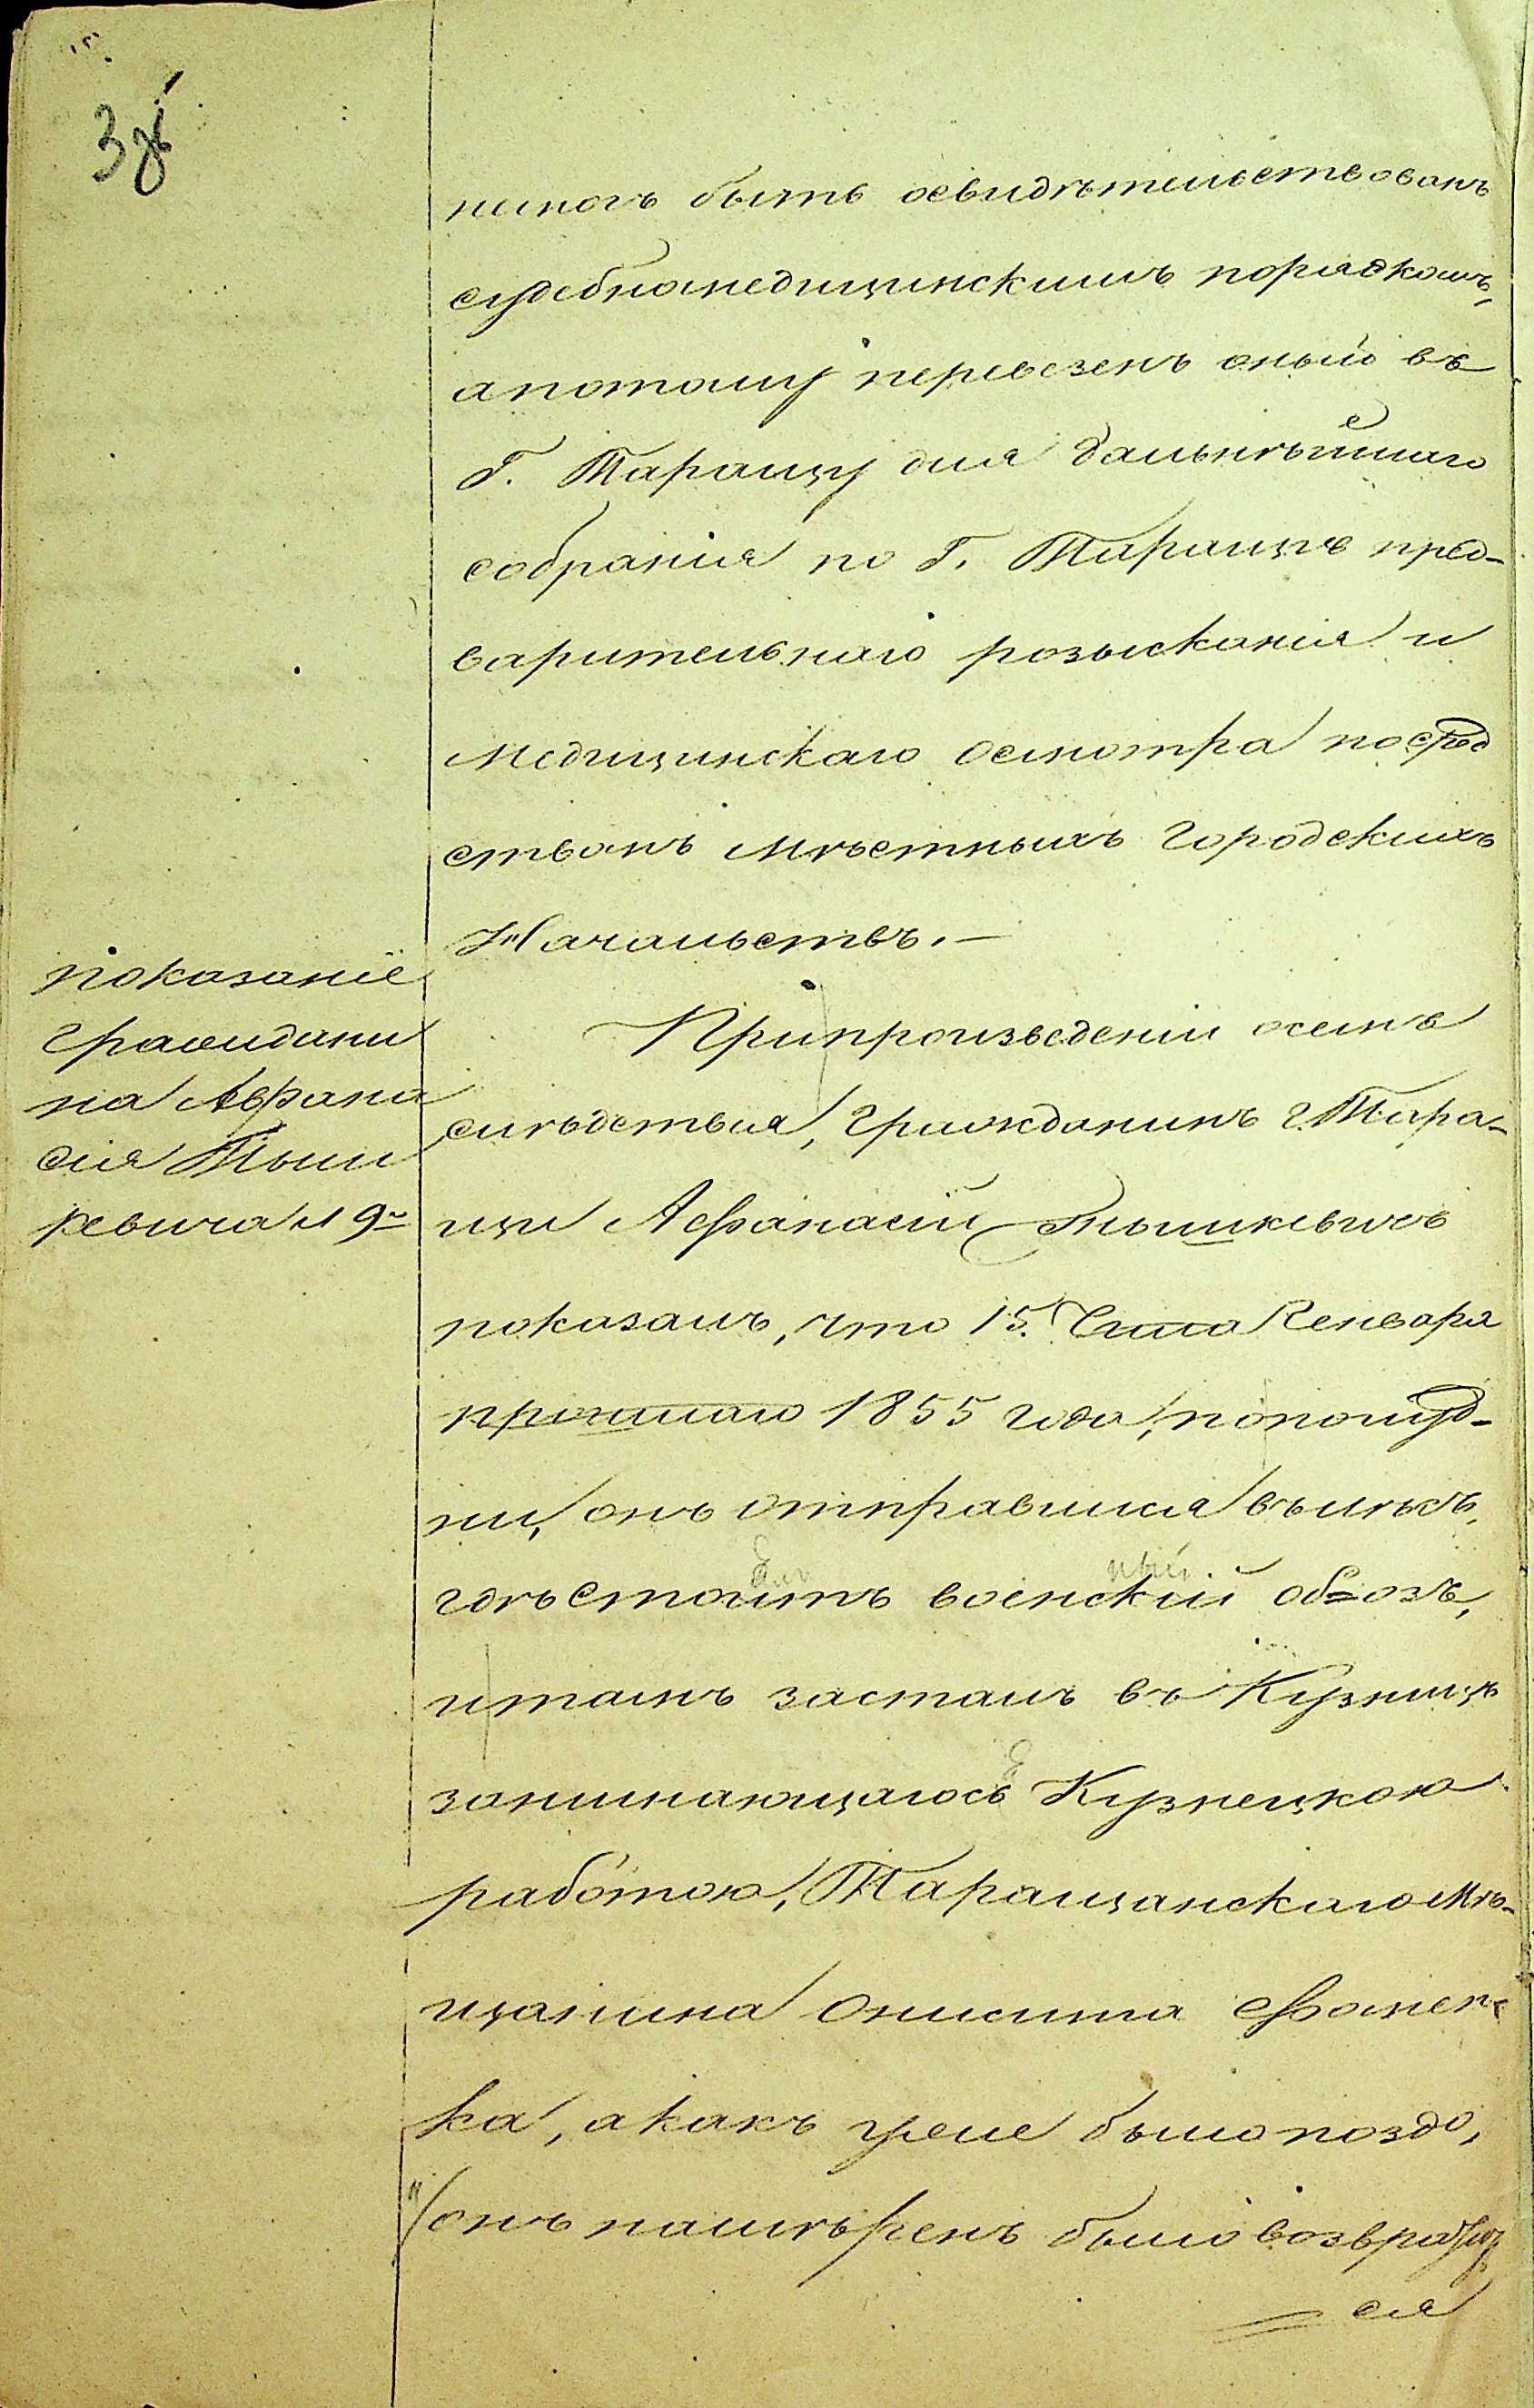 немогъ быть освидѣтельствованъ
судебномедицинскимъ порядкомъ,
апотому перевезенъ оный въ
Г. Таращу для дальнѣйшаго
собранія по Г. Таращѣ пред-
варительнаго розысканія и
медицинскаго осмотра посред
ствомъ мѣстныхъ городскихъ
Начальствъ. —
показаніе
граждани
на Афана
сія Тыш
кевича л 9
Припроизведеніи осемъ
слѣдствія, гражданинъ г. Тара-
щи Афанасій Тышкевичъ
показалъ, что 15. Числа Генваря
прошлаго 1855 года, пополуд-
ни, онъ отправился въ
гдѣ стоитъ военскій обозъ,
итамъ засталъ въ Кузницѣ
занимающагось Кузнецкою
работою, Таращанскаго мѣ-
щанина Онисима Фомен-
ка, акакъ уже было поздо,
онъ намѣренъ былъ возвратить
ся